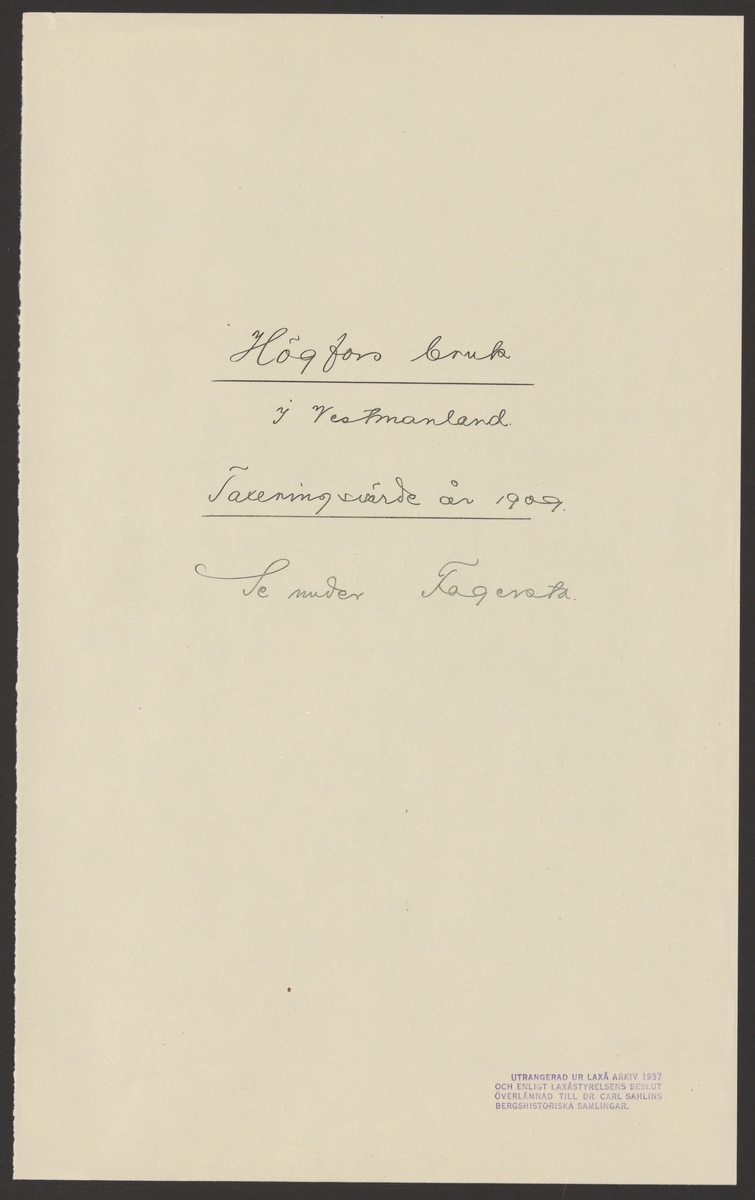 Högfors bruk
i Vestmanland.
Taxeringsvärde år 1909.
Se under Fagersta.
UTRANGERAD UR LAXÅ ARKIV 1937
OCH ENLIGT LAXÅSTYRELSENS BESLUT
ÖVERLÄMNAD TILL DR CARL SAHLINS
BERGSHISTORISKA SAMLINGAR.